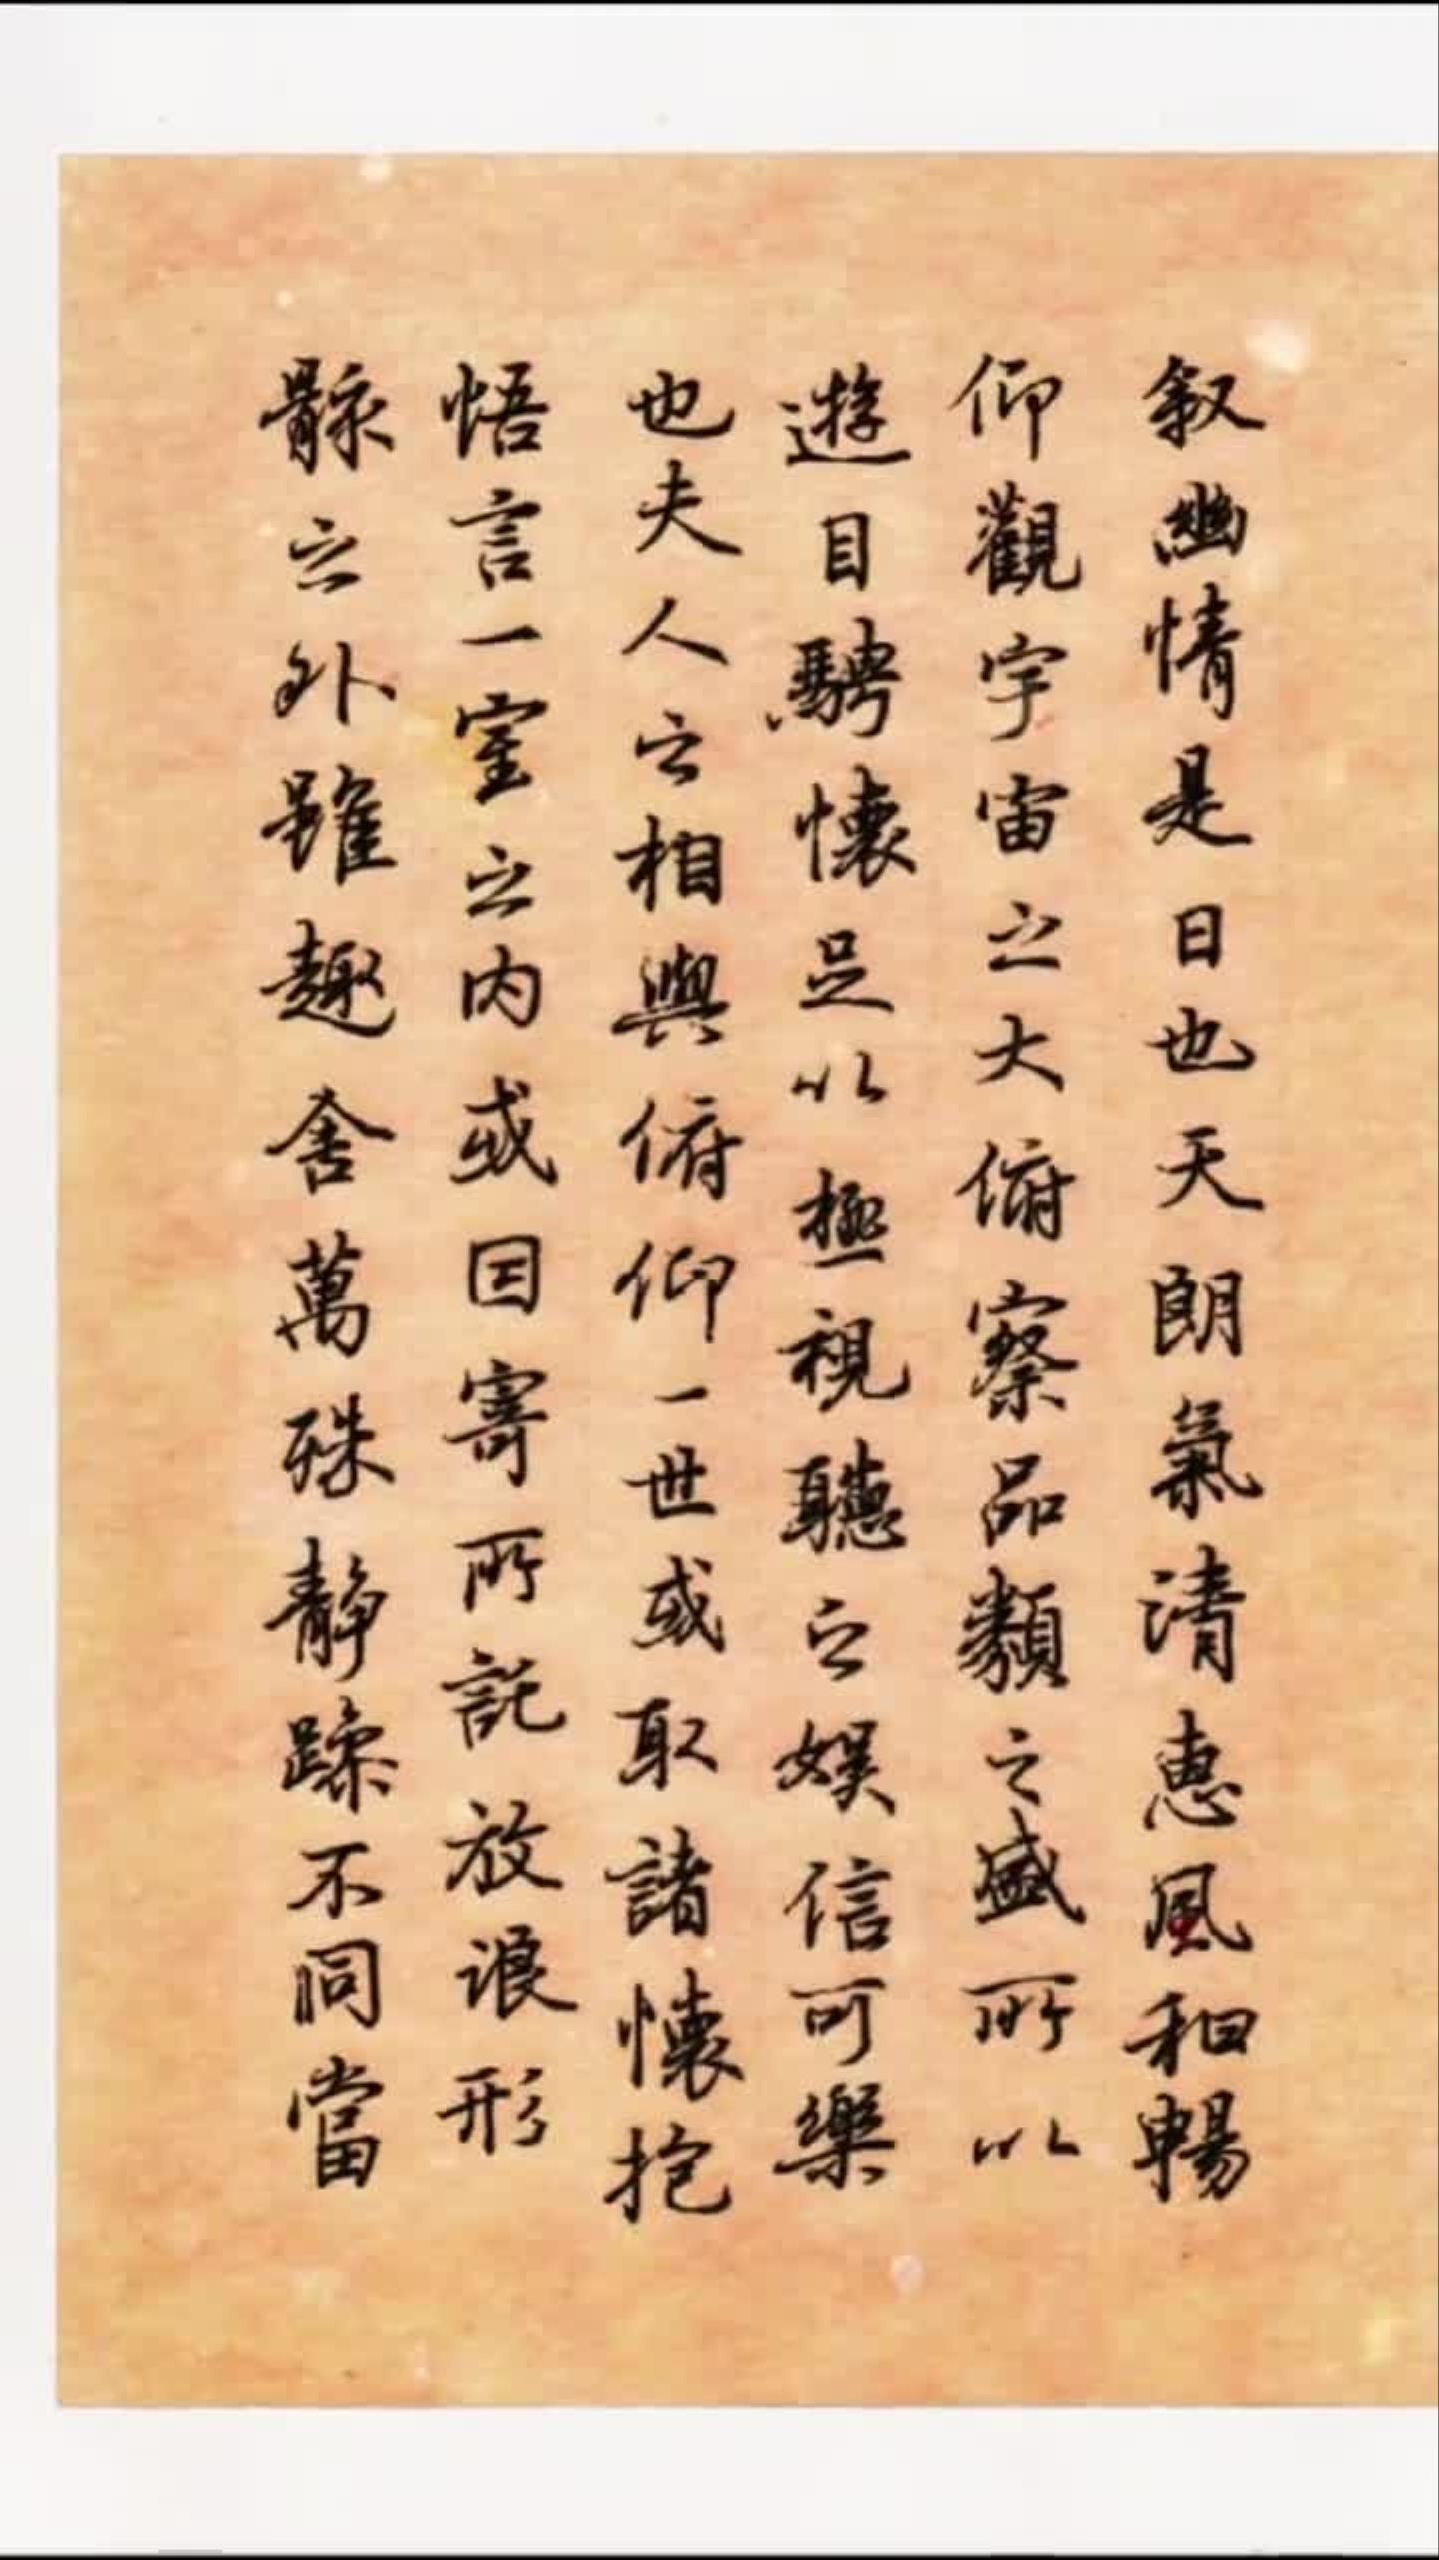 叙幽情是日也天朗氣清惠風和暢
仰觀宇宙之大俯察品類之盛所以
遊目騁懷足以極視聽之娛信可樂
也夫人之相與俯仰一世或取諸懷抱
悟言一室之內或因寄所託放浪形
骸之外雖趣舍萬殊靜躁不同當